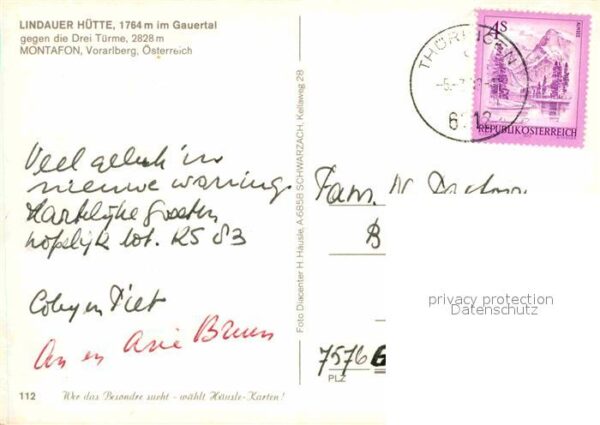 LINDAUER HÜTTE, 1764 m im Gauertal
gegen die Drei Türme, 2828 m
MONTAFON, Vorarlberg, Österreich
4S
REPUBLIK ÖSTERREICH
Veel geluk in
nieuwe woning.
Hartelijke groeten
hopelijk tot. RS 83
Coby en Piet
An en Arie Breur
Fam.
B
7576
PLZ
Foto Diacenter H. Häusle, A-6858 SCHWARZACH, Kellaweg 28
privacy protection
Datenschutz
112 Wer das Besondre sucht - wählt Häusle-Karten!